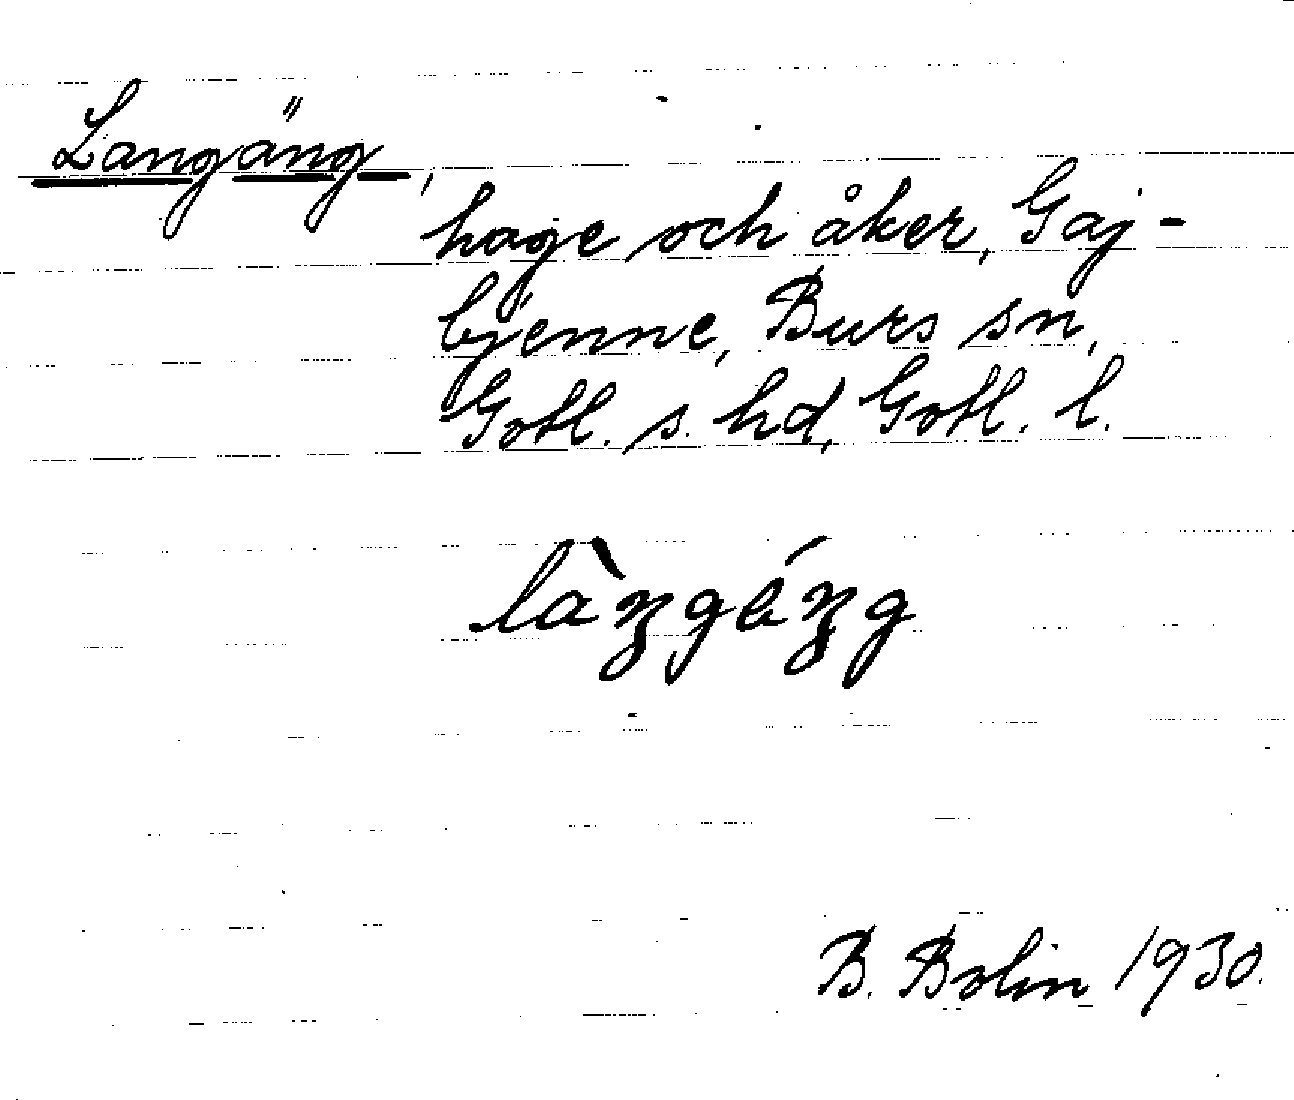 Langäng,
hage och åker, Gaj-
bjenne, Burs sn,
Gotl. s. hd, Gotl. l.
làŋgéŋg
B. Bolin 1930.